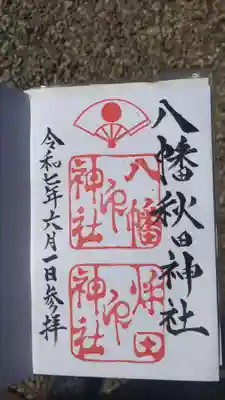 八幡秋田神社
八幡
神社
印
秋田
神社
印
令和七年六月一日参拝